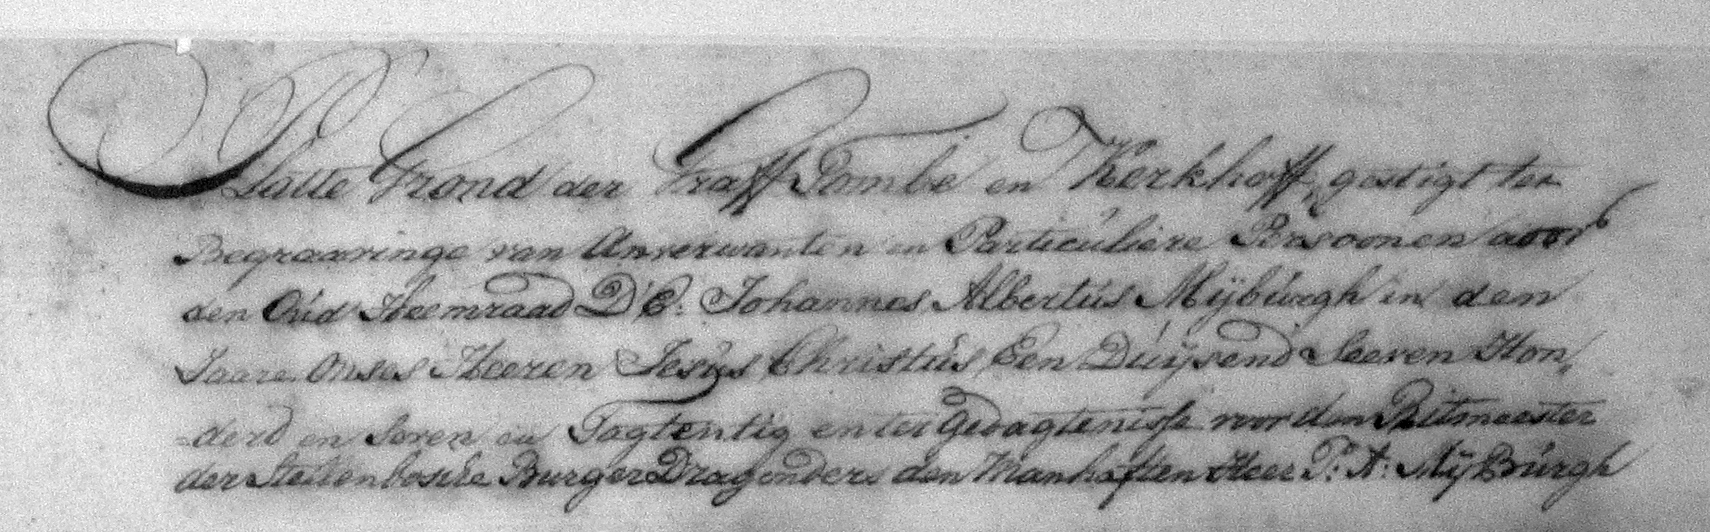 Platte Grond der Graff Tombe en Kerkhoff, gestigt ter
Begraavinge van Anverwanten en Particuliere Persoonen door
den Oud Heemraad D'E: Johannes Albertus Mÿburgh in den
Jaare Onses Heeren Jesus Christus Een Duÿsend Seeven Hon„
„derd en Seven en Tagtentig en ter Gedagtenisse voor den Ritmeester
der Stellenbosche Burger Dragonders den Manhaften Heer P: A: MÿBurgh